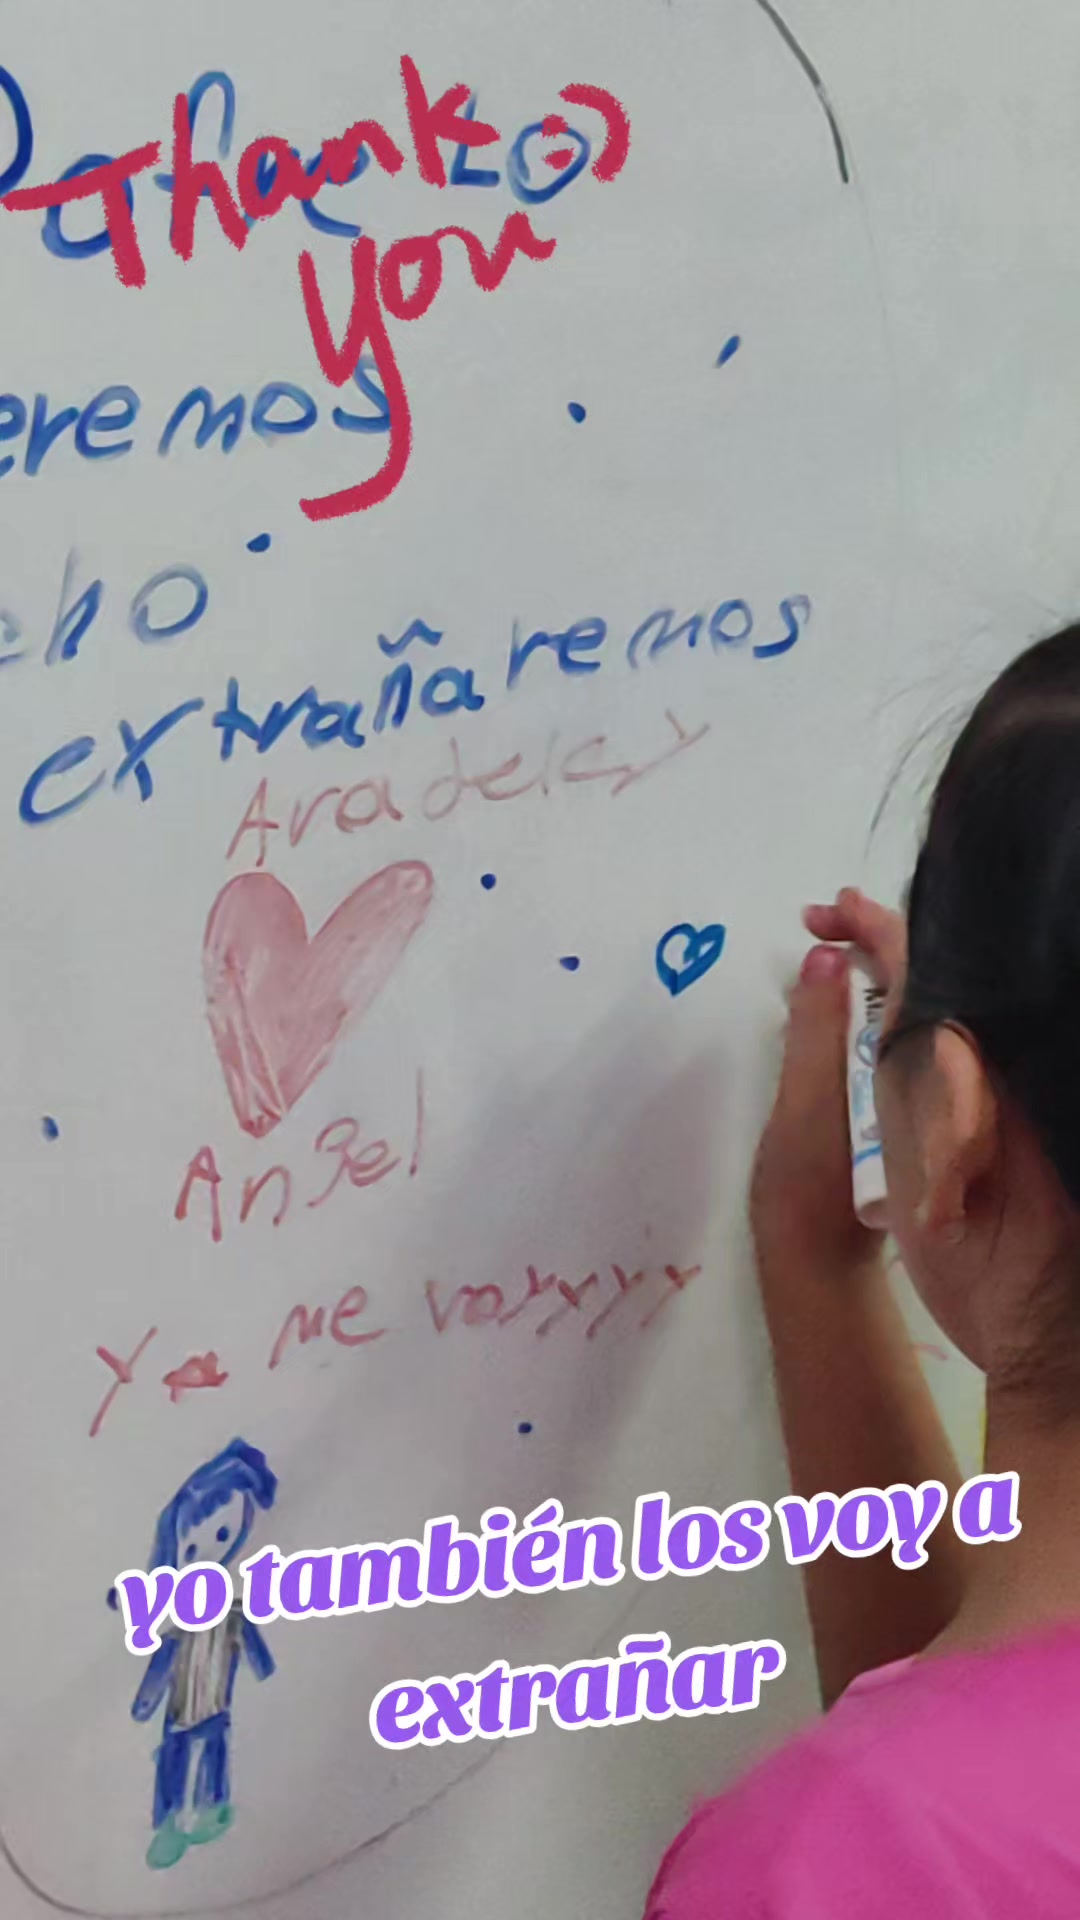 Thank :)
you
eremos
cho
extrañaremos
Aradelsy
Angel
Ya me voyyyy
yo también los voy a
extrañar